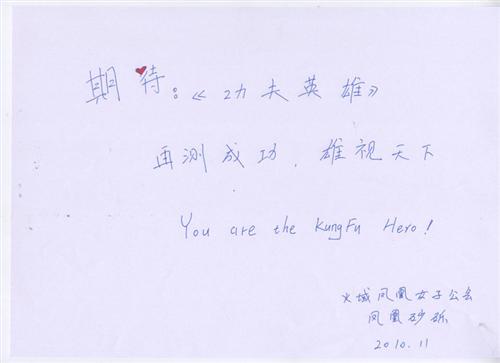 期待:《功夫英雄》
再测成功,雄视天下
You are the KungFu Hero!
火域凤凰女子公会
凤凰砂
2010.11